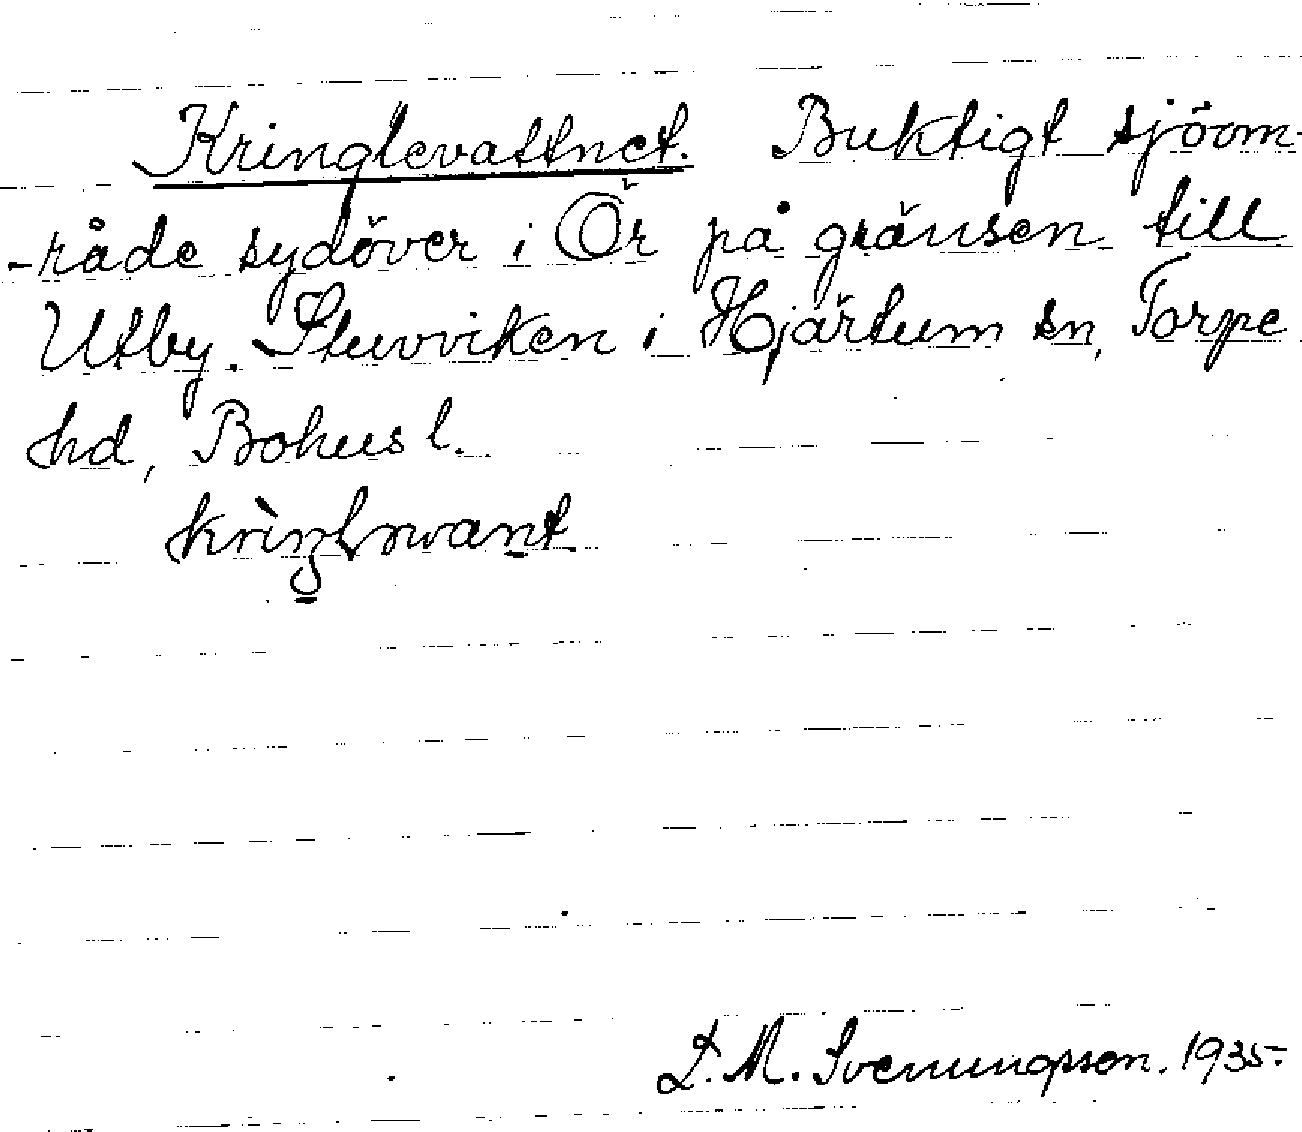 Kringlevattnet. Buktigt sjöom-
-råde sydöver i Ör på gränsen till
Utby. Stuvviken i Hjärtum sn, Torpe
hd, Bohusl.
L. M. Svenungsson. 1935.